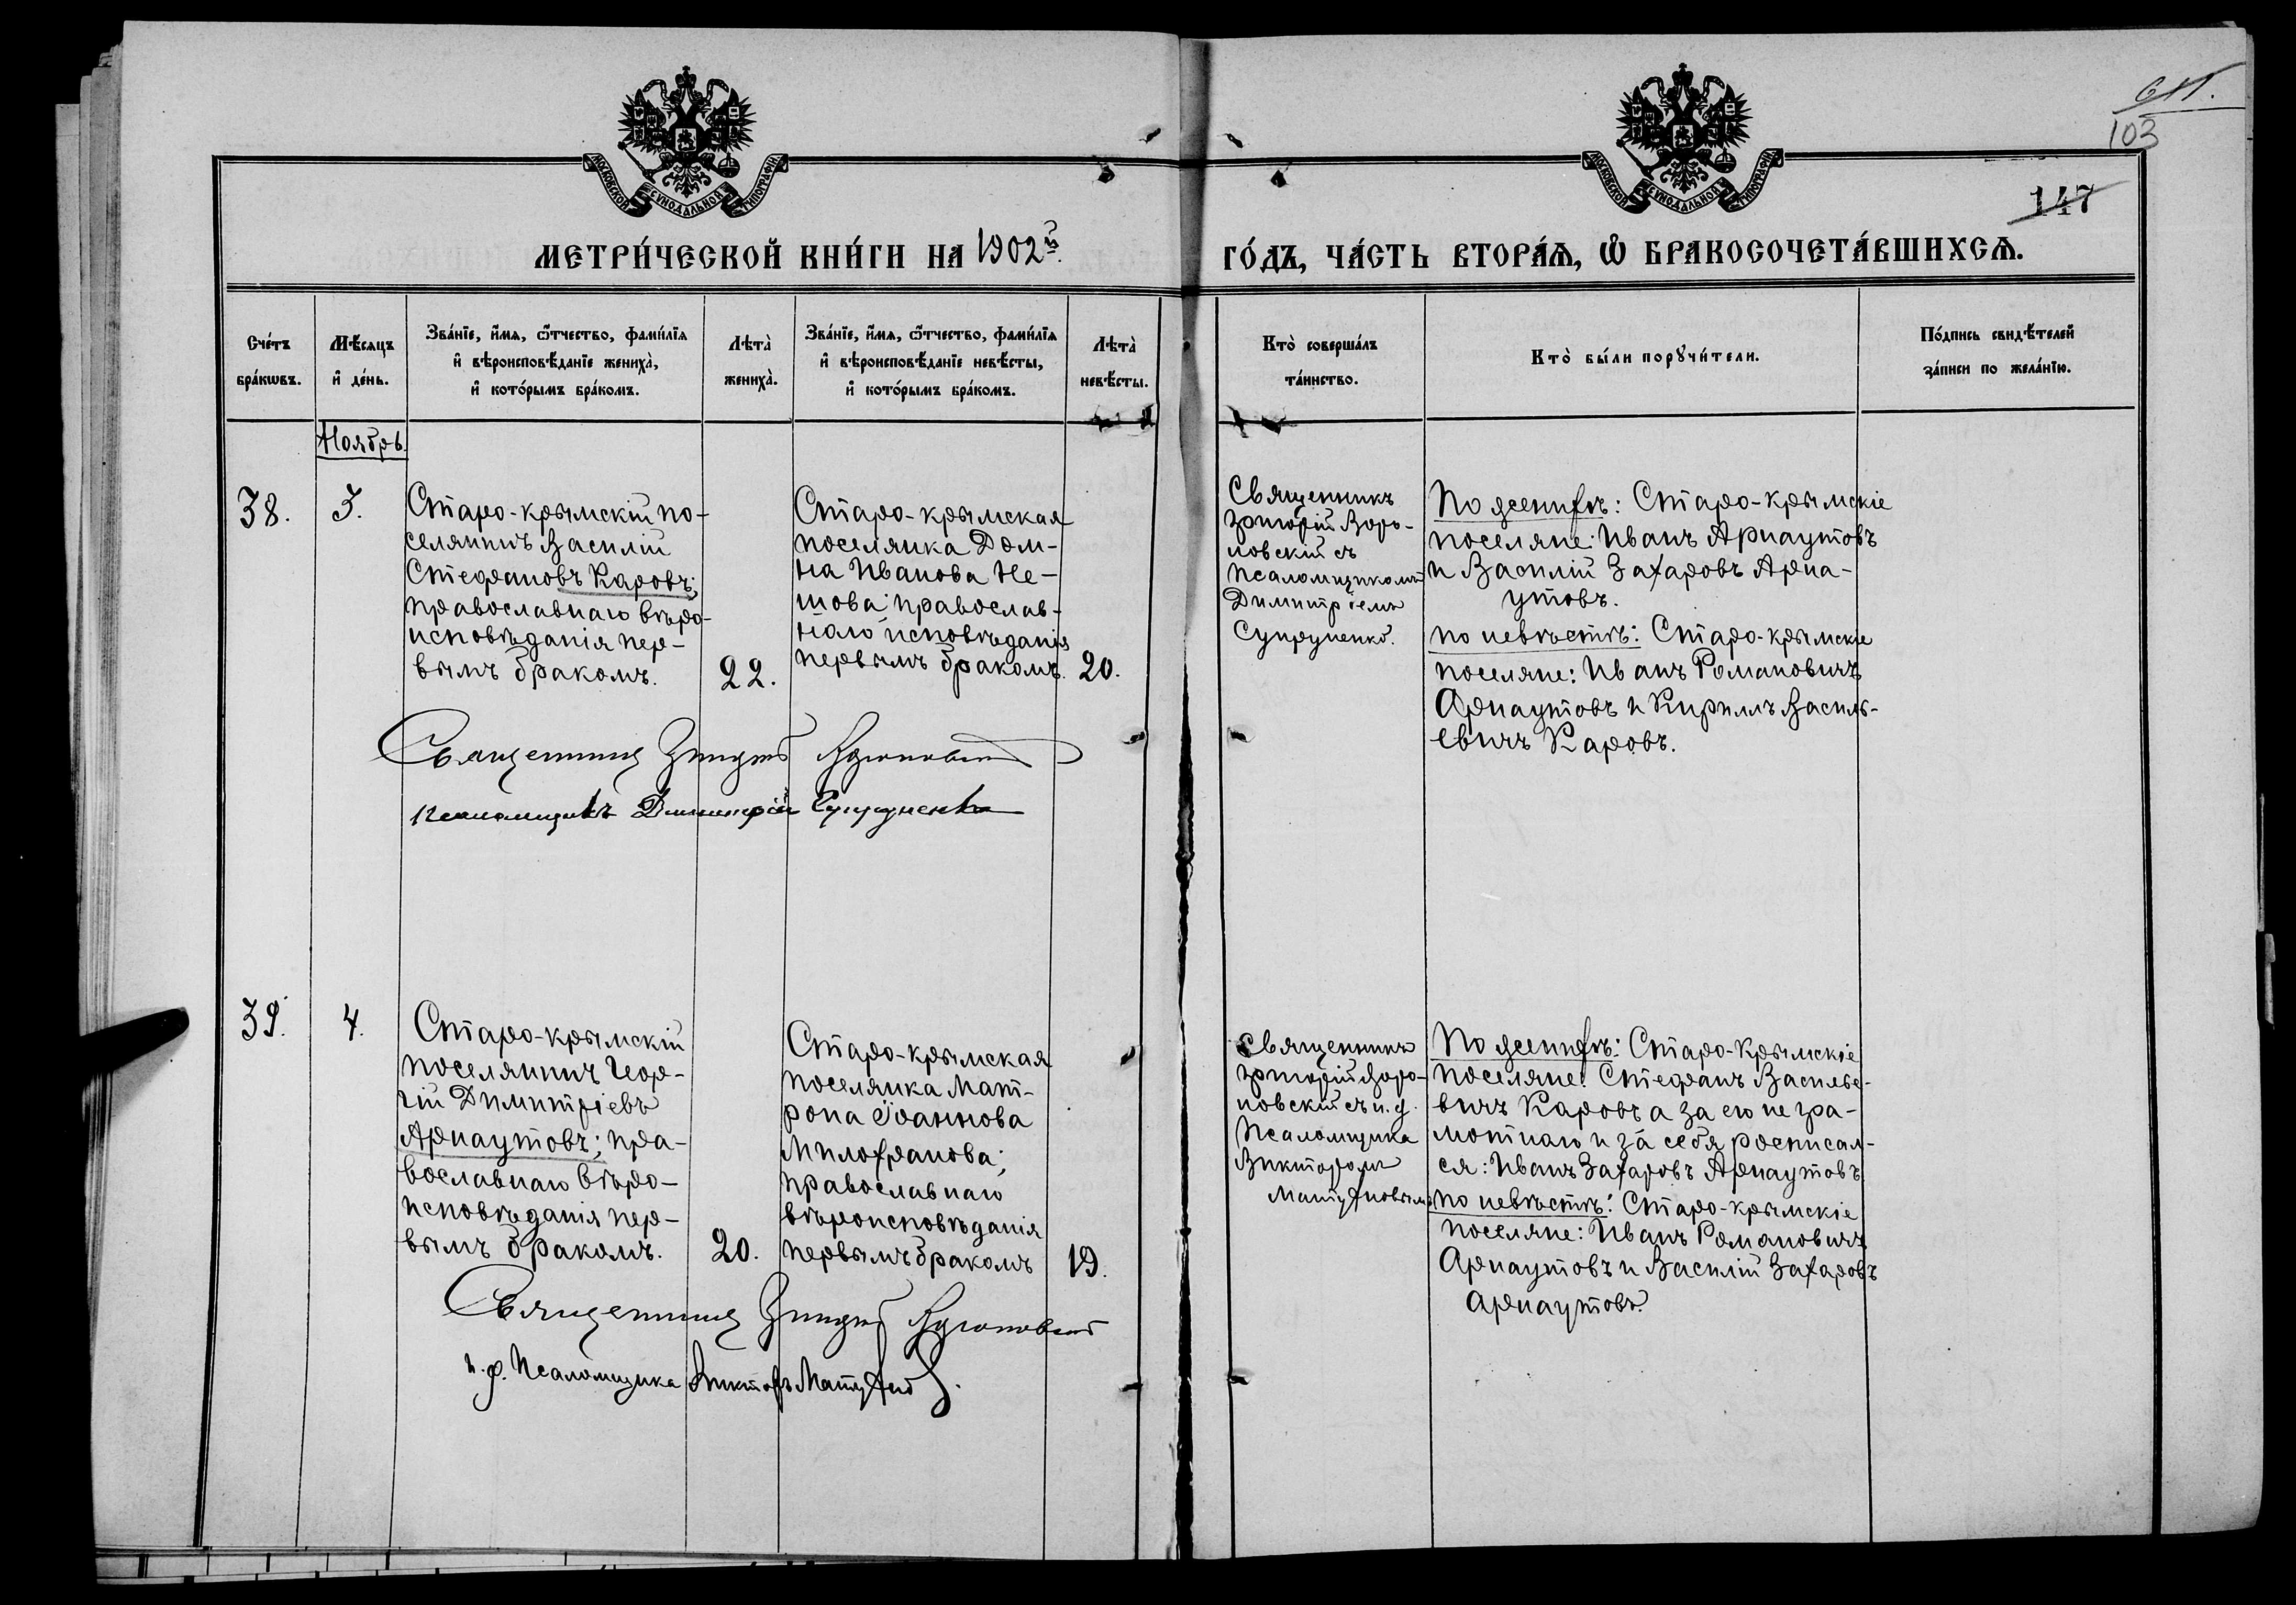 611.
103
147
МОСКОВСКОЙ СѴНОДАЛЬНОЙ ТИПОГРАФІИ
МОСКОВСКОЙ СѴНОДАЛЬНОЙ ТИПОГРАФІИ
МЕТРИ́ЧЕСКОЙ КНИ́ГИ НА 1902й
ГО́ДЪ, ЧА́СТЬ ВТОРА́Ѧ, Ѽ БРАКОСОЧЕТА́ВШИХСѦ.
Сче́тъ бра́кѡвъ.
Мѣ́сяцъ и҆ де́нь.
Зва́нїе, и҆́мѧ, ѻ҆́тчество, фами́лїѧ и҆ вѣроисповѣ́данїе жениха̀, и҆ кото́рымъ бра́комъ.
Лѣта̀ жениха̀.
Зва́нїе, и҆́мѧ, ѻ҆́тчество, фами́лїѧ и҆ вѣроисповѣ́данїе невѣ́сты, и҆ кото́рымъ бра́комъ.
Лѣта̀ невѣ́сты.
Кто̀ соверша́лъ та́инство.
Кто̀ бы́ли порꙋчи́тели.
По́дпись свидѣ́телей за́писи по жела́нїю.
Ноябрь.
38.
3.
Старо-крымскій по-
селянинъ Василій
Стефановъ Каровъ;
православнаго вѣро-
исповѣданія пер-
вымъ бракомъ.
22.
Старо-крымская
поселянка Дом-
на Иванова Не-
шова; православ-
наго исповѣданія
первымъ бракомъ.
20.
Священникъ
Григорій
ловскій съ
псаломщикомъ
Димитріемъ
Супруненко.
По женихѣ: Старо-крымскіе
поселяне: Иванъ Арнаутовъ
и Василій Захаровъ Арна-
утовъ.
по невѣстѣ: Старо-крымскіе
поселяне: Иванъ Романовичъ
Арнаутовъ и Кириллъ Василь-
евичъ Каровъ.
Священникъ Григорій
псаломщикъ Димитрій Супруненко
39.
4.
Старо-крымскій
поселянинъ Геор-
гій Димитріевъ
Арнаутовъ; пра-
вославнаго вѣро-
исповѣданія пер-
вымъ бракомъ.
20.
Старо-крымская
поселянка Мат-
рона Іоаннова
Милохранова;
православнаго
вѣроисповѣданія
первымъ бракомъ
19.
Священникъ
Григорій
новскій съ и. д.
псаломщика
Викторомъ
Матухновымъ
По женихѣ: Старо-Крымскіе
поселяне: Стефанъ Василье-
вичъ Каровъ а за его не гра-
мотнаго и за себя росписал-
ся: Иванъ Захаровъ Арнаутовъ
по невѣстѣ: Старо-крымскіе
поселяне: Иванъ Романовичъ
Арнаутовъ и Василій Захаровъ
Арнаутовъ.
Священникъ Григорій
и. д. Псаломщика Викторъ Матухно